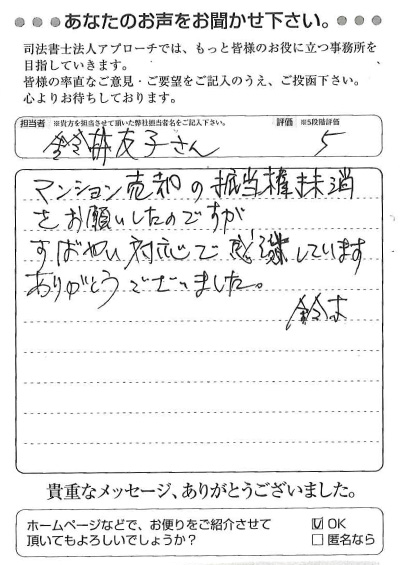 ●●●あなたのお声をお聞かせ下さい。●●●
司法書士法人アプローチでは、もっと皆様のお役に立つ事務所を
目指していきます。
皆様の率直なご意見・ご要望をご記入のうえ、ご投函下さい。
心よりお待ちしております。
担当者 ※貴方を担当させて頂いた弊社担当者名をご記入下さい。 評価 ※5段階評価
友子さん 5
マンション売却の抵当権抹消
をお願いしたのですが
すばやい対応で感謝しています
ありがとうございました。
鈴木
貴重なメッセージ、ありがとうございました。
ホームページなどで、お便りをご紹介させて
頂いてもよろしいでしょうか?
☑ OK
□ 匿名なら